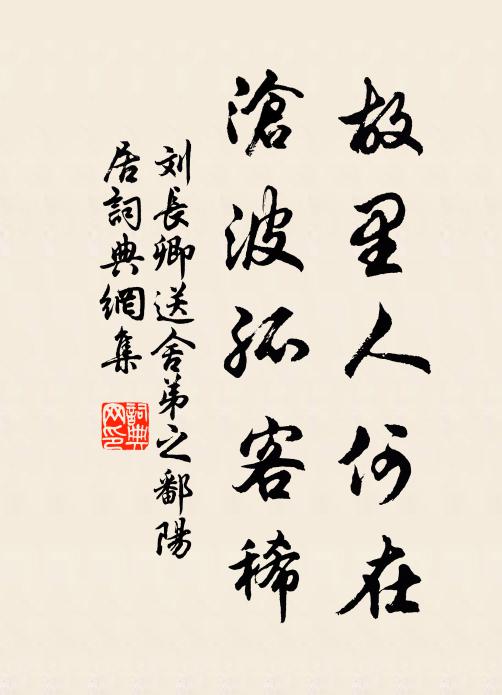 故里人何在
滄波孤客稀
刘長卿送舍弟之鄱陽
居詞典網集
詞典网印